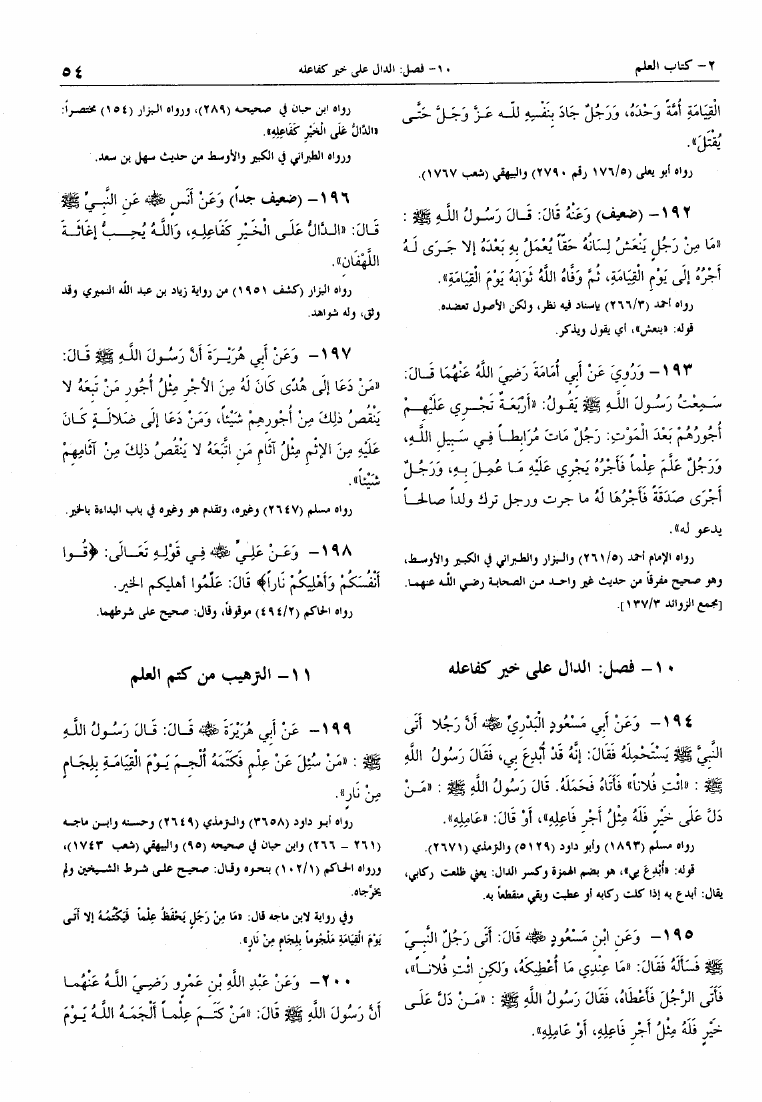 ٢- كتاب العلم
١٠- فصل: الدال على خير كفاعله
٥٤
القِيَامَةِ أُمَّةً وَحْدَهُ، وَرَجُلٌ جَادَ بِنَفْسِهِ للَّه عَزَّ وَجَلَّ حَتَّى
يُقْتَلَ».
رواه أبو يعلى (١٧٦/٥ رقم ٢٧٩٠) والبيهقي (شعب ١٧٦٧).
١٩٢- (ضعيف) وَعَنْهُ قَالَ: قَالَ رَسُولُ اللَّهِ ﷺ :
«مَا مِنْ رَجُلٍ يَنْعَشُ لِسَانُهُ حَقاً يُعْمَلُ بِهِ بَعْدَهُ إلا جَرَى لَهُ
أَجْرُهُ إلَى يَوْمِ الْقِيَامَةِ، ثُمَّ وَفَّاهُ اللَّهُ ثَوَابَهُ يَوْمَ الْقِيَامَةِ».
رواه أحمد (٢٦٦/٣) بإسناد فيه نظر، ولكن الأصول تعضده.
قوله: «ينعش»، أي يقول ويذكر.
١٩٣- وَرُوِيَ عَنْ أَبِي أُمَامَةَ رَضِيَ اللَّهُ عَنْهُمَا قَالَ:
سَمِعْتُ رَسُولَ اللَّهِ ﷺ يَقُولُ: «أَرْبَعَةٌ تَجْرِي عَلَيْهِمْ
أُجُورُهُمْ بَعْدَ الْمَوْتِ: رَجُلٌ مَاتَ مُرَابِطاً فِي سَبِيلِ اللَّهِ،
وَرَجُلٌ عَلَّمَ عِلْماً فَأَجْرُهُ يَجْرِي عَلَيْهِ مَا عُمِلَ بِهِ، وَرَجُلٌ
أَجْرَى صَدَقَةً فَأَجْرُهَا لَهُ ما جرت ورجل ترك ولداً صالحاً
يدعو له».
رواه الإمام أحمد (٢٦١/٥) والبزار والطبراني في الكبير والأوسط،
وهو صحيح مفرقاً من حديث غير واحد من الصحابة رضي اللَّه عنهما.
[مجمع الزوائد ١٣٧/٣].
١٠- فصل: الدال على خير كفاعله
١٩٤- وَعَنْ أَبِي مَسْعُودٍ الْبَدْرِيِّ ﷺ أَنَّ رَجُلاً أَتَى
النَّبِيَّ ﷺ يَسْتَحْمِلُهُ فَقَالَ: إنَّهُ قَدْ أُبْدِعَ بِي، فَقَالَ رَسُولُ اللَّهِ
ﷺ : «ائْتِ فُلاناً» فَأَتَاهُ فَحَمَلَهُ. قَالَ رَسُولُ اللَّهِ ﷺ : «مَنْ
دَلَّ عَلَى خَيْرٍ فَلَهُ مِثْلُ أَجْرِ فَاعِلِهِ»، أَوْ قَالَ: «عَامِلِهِ».
رواه مسلم (١٨٩٣) وأبو داود (٥١٢٩) والترمذي (٢٦٧١).
قوله: «أُبْدِعَ بِي»، هو بضم الهمزة وكسر الدال: يعني ظلعت ركابي،
يقال: أبدع به إذا كلت ركابه أو عطبت وبقي منقطعاً به.
١٩٥- وَعَنِ ابْنِ مَسْعُودٍ قَالَ: أَتَى رَجُلٌ النَّبِيَّ
ﷺ فَسَأَلَهُ فَقَالَ: «مَا عِنْدِي مَا أُعْطِيكَهُ، وَلَكِنِ ائْتِ فُلاناً»،
فَأَتَى الرَّجُلَ فَأَعْطَاهُ، فَقَالَ رَسُولُ اللَّهِ ﷺ : «مَنْ دَلَّ عَلَى
خَيْرٍ فَلَهُ مِثْلُ أَجْرِ فَاعِلِهِ، أَوْ عَامِلِهِ».
رواه ابن حبان في صحيحه (٢٨٩)، ورواه البزار (١٥٤) مختصراً:
«الدَّالُّ عَلَى الْخَيْرِ كَفَاعِلِهِ».
ورواه الطبراني في الكبير والأوسط من حديث سهل بن سعد.
١٩٦- (ضعيف جداً) وَعَنْ أَنَسٍ عَنِ النَّبِيِّ ﷺ
قَالَ: «الدَّالُّ عَلَى الْخَيْرِ كَفَاعِلِهِ، وَاللَّهُ يُحِبُّ إغَاثَةَ
اللَّهْفَانِ».
رواه البزار (كشف ١٩٥١) من رواية زياد بن عبد اللَّه النميري وقد
وثق، وله شواهد.
١٩٧- وَعَنْ أَبِي هُرَيْرَةَ أَنَّ رَسُولَ اللَّهِ ﷺ قَالَ:
«مَنْ دَعَا إلَى هُدًى كَانَ لَهُ مِنَ الأَجْرِ مِثْلُ أُجُورِ مَنْ تَبِعَهُ لا
يَنْقُصُ ذلِكَ مِنْ أُجُورِهِمْ شَيْئاً، وَمَنْ دَعَا إلَى ضَلالَةٍ كَانَ
عَلَيْهِ مِنَ الإِثْمِ مِثْلُ آثَامِ مَنِ اتَّبَعَهُ لا يَنْقُصُ ذلِكَ مِنْ آثَامِهِمْ
شَيْئاً».
رواه مسلم (٢٦٤٧) وغيره، وتقدم هو وغيره في باب البداءة بالخير.
١٩٨- وَعَنْ عَلِيٍّ فِي قَوْلِهِ تَعَالَى: ﴿قُوا
أَنْفُسَكُمْ وَأَهْلِيكُمْ نَاراً﴾ قَالَ: عَلِّمُوا أهليكم الخير.
رواه الحاكم (٤٩٤/٢) موقوفاً، وقال: صحيح على شرطهما.
١١- الترهيب من كتم العلم
١٩٩- عَنْ أَبِي هُرَيْرَةَ قَالَ: قَالَ رَسُولُ اللَّهِ
ﷺ : «مَنْ سُئِلَ عَنْ عِلْمٍ فَكَتَمَهُ أُلْجِمَ يَوْمَ الْقِيَامَةِ بِلِجَامٍ
مِنْ نَارٍ».
رواه أبو داود (٣٦٥٨) والترمذي (٢٦٤٩) وحسنه وابن ماجه
(٢٦١ - ٢٦٦) وابن حبان في صحيحه (٩٥) والبيهقي (شعب ١٧٤٣)،
ورواه الحاكم (١٠٢/١) بنحوه وقال: صحيح على شرط الشيخين ولم
يخرِّجاه.
وفي رواية لابن ماجه قال: «مَا مِنْ رَجُلٍ يَحْفَظُ عِلْماً فَيَكْتُمُهُ إلا أَتَى
يَوْمَ الْقِيَامَةِ مَلْجُوماً بِلِجَامٍ مِنْ نَارٍ».
٢٠٠- وَعَنْ عَبْدِ اللَّهِ بْنِ عَمْرٍو رَضِيَ اللَّهُ عَنْهُمَا
أَنَّ رَسُولَ اللَّهِ ﷺ قَالَ: «مَنْ كَتَمَ عِلْماً أَلْجَمَهُ اللَّهُ يَوْمَ